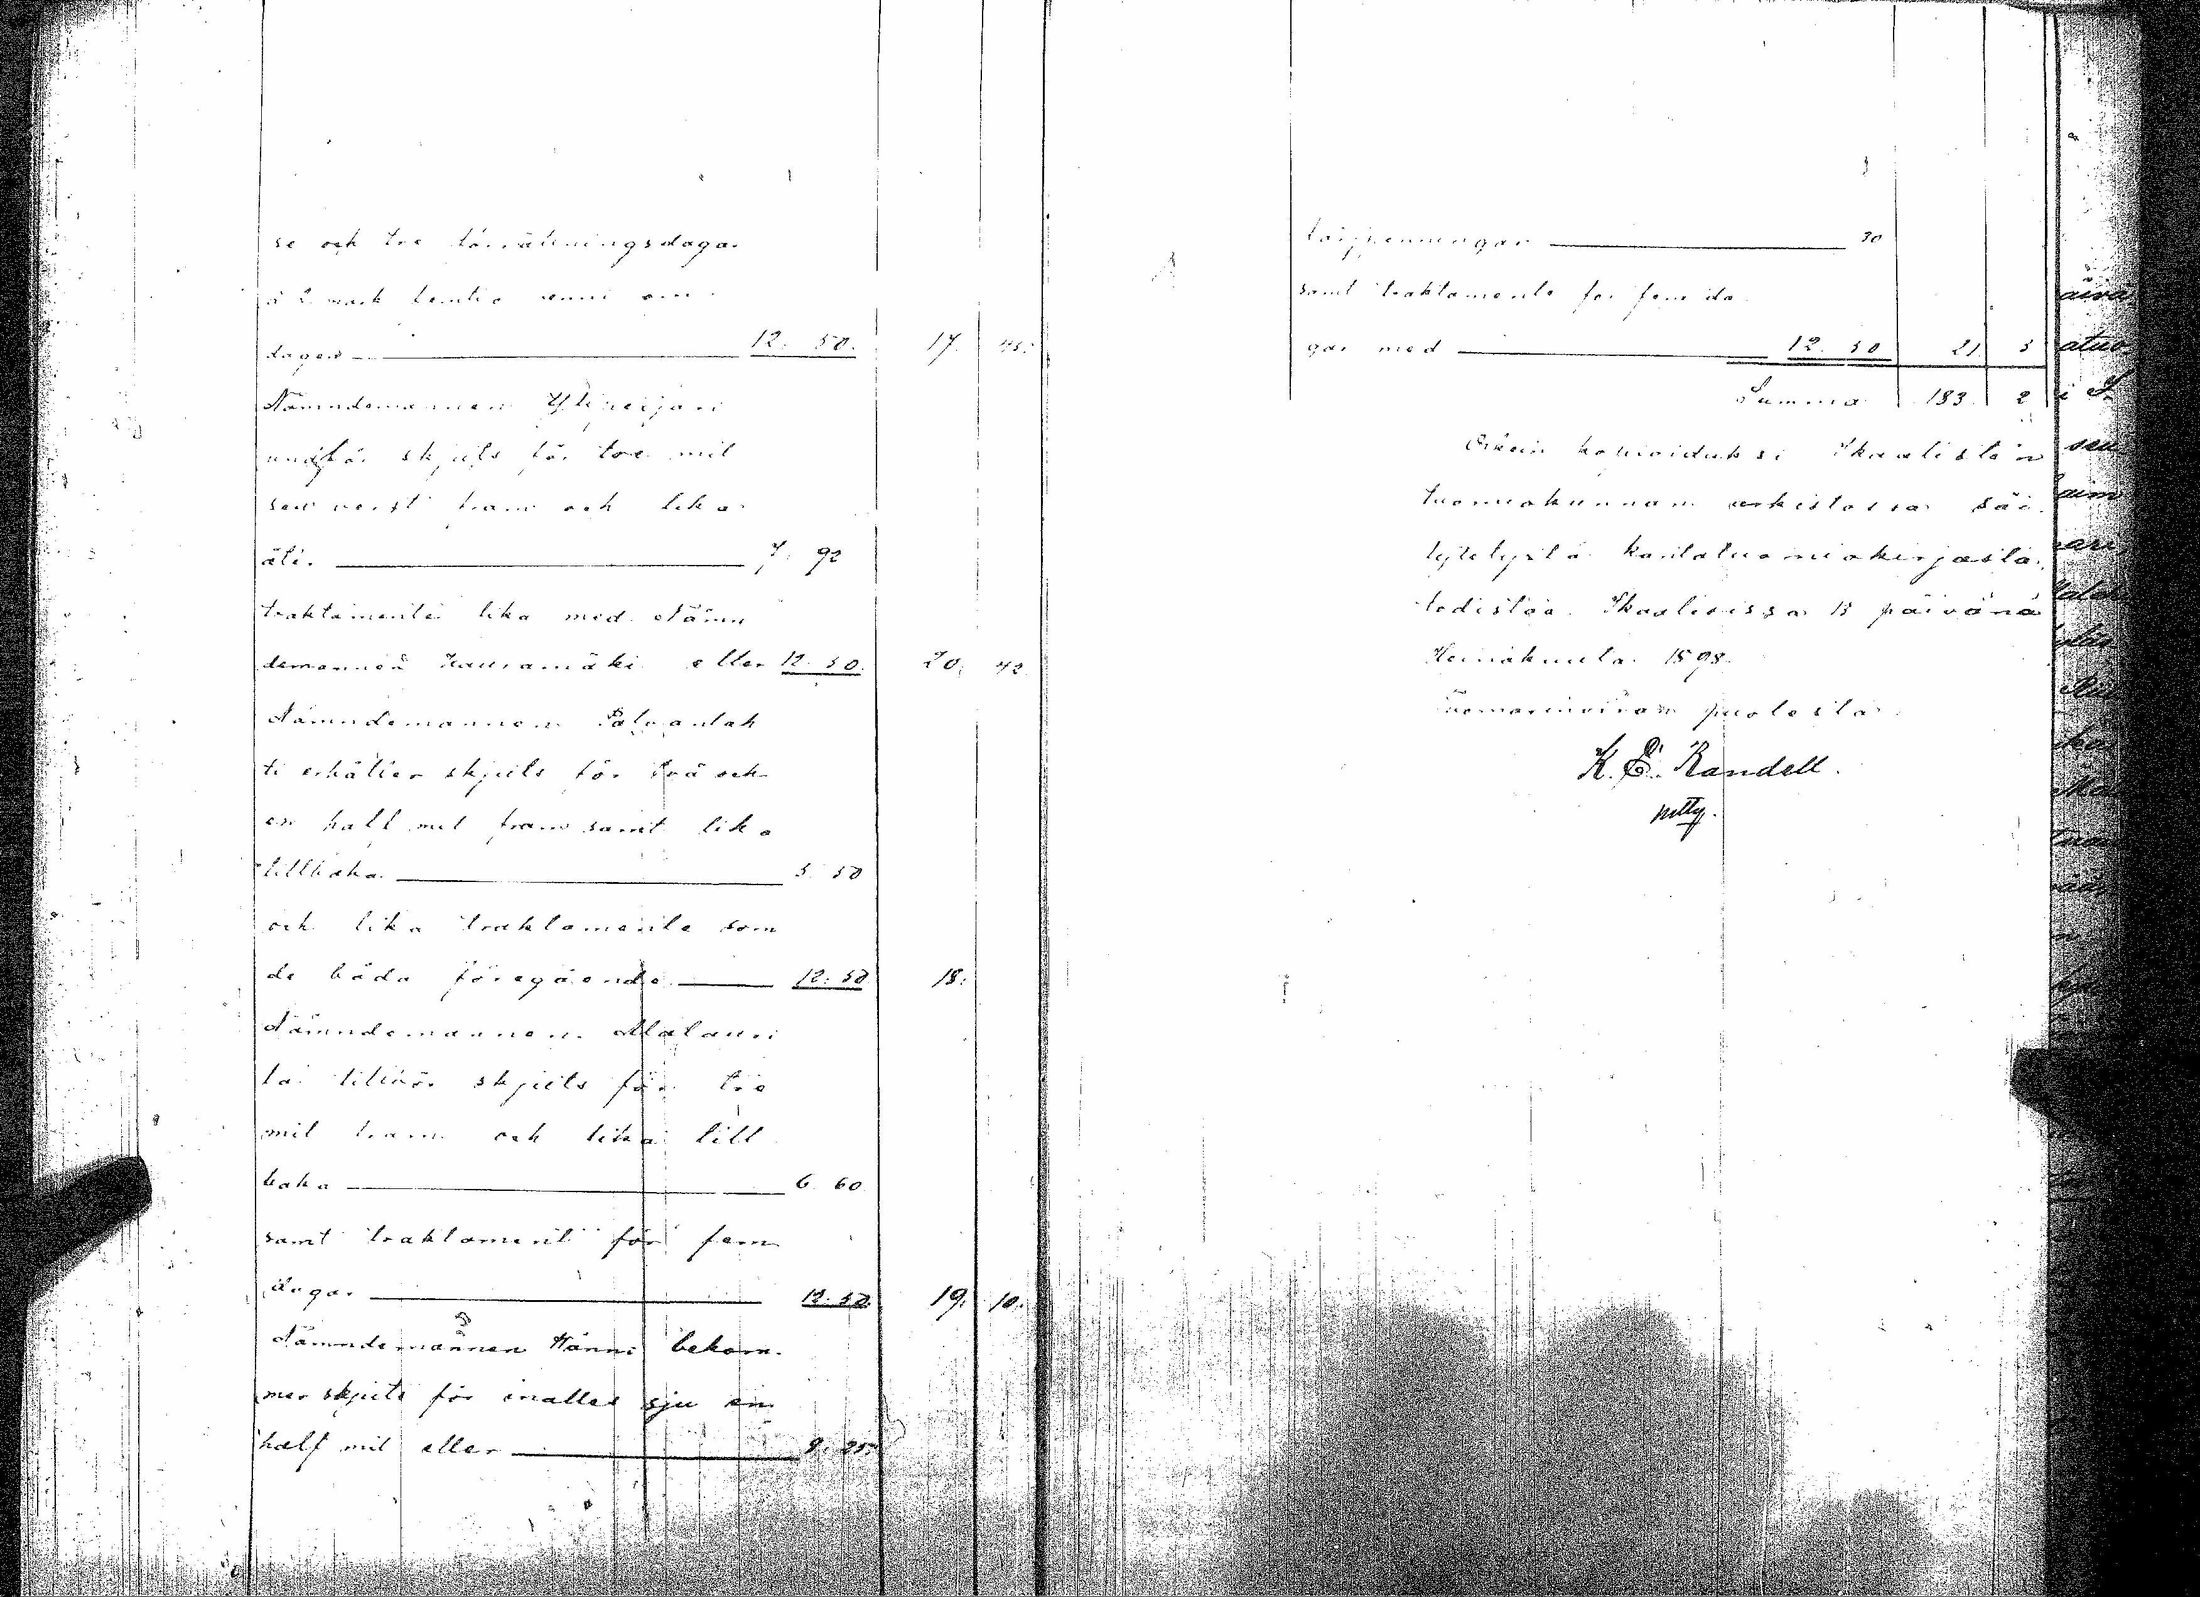 se och tre förrättningsdagar
à 2 mark femtio penni om
dagen 12. 50. 17. 45.
Nämndemannen Ylipeijari
undfår skjuts för tre mil
sex verst fram och lika
åter 7. 92
traktamente lika med Näm
demannen Kauramäki eller 12. 50. 20. 42.
Nämndemannen Palvanlah
ti erhåller skjuts för två och
en half mil fram samt lika
tillbaka 5. 50
och lika traktamente som
de båda föregående 12. 50 18.
Nämndemannen Alalauri
la tillhör skjuts för tre
mil fram och lika till
baka 6. 60
samt traktament för fem
dagar 12. 50. 19. 10.
Nämndemannen Hänni bekom-
mer skjuts för inalles sju en
half mil eller 8. 25.
färjpenningar 30
samt traktamente för fem da
gar med 12. 50 21. 5
Summa 183. 2
Oikein kopioiduksi Ikaalisten
tuomiokunnan arkistossa säi-
lytetystä kantatuomiokirjasta,
todistaa. Ikaalisissa 15 päivänä
Heinäkuuta 1898.
Tuomarinviran puolesta
K. E. Randell.